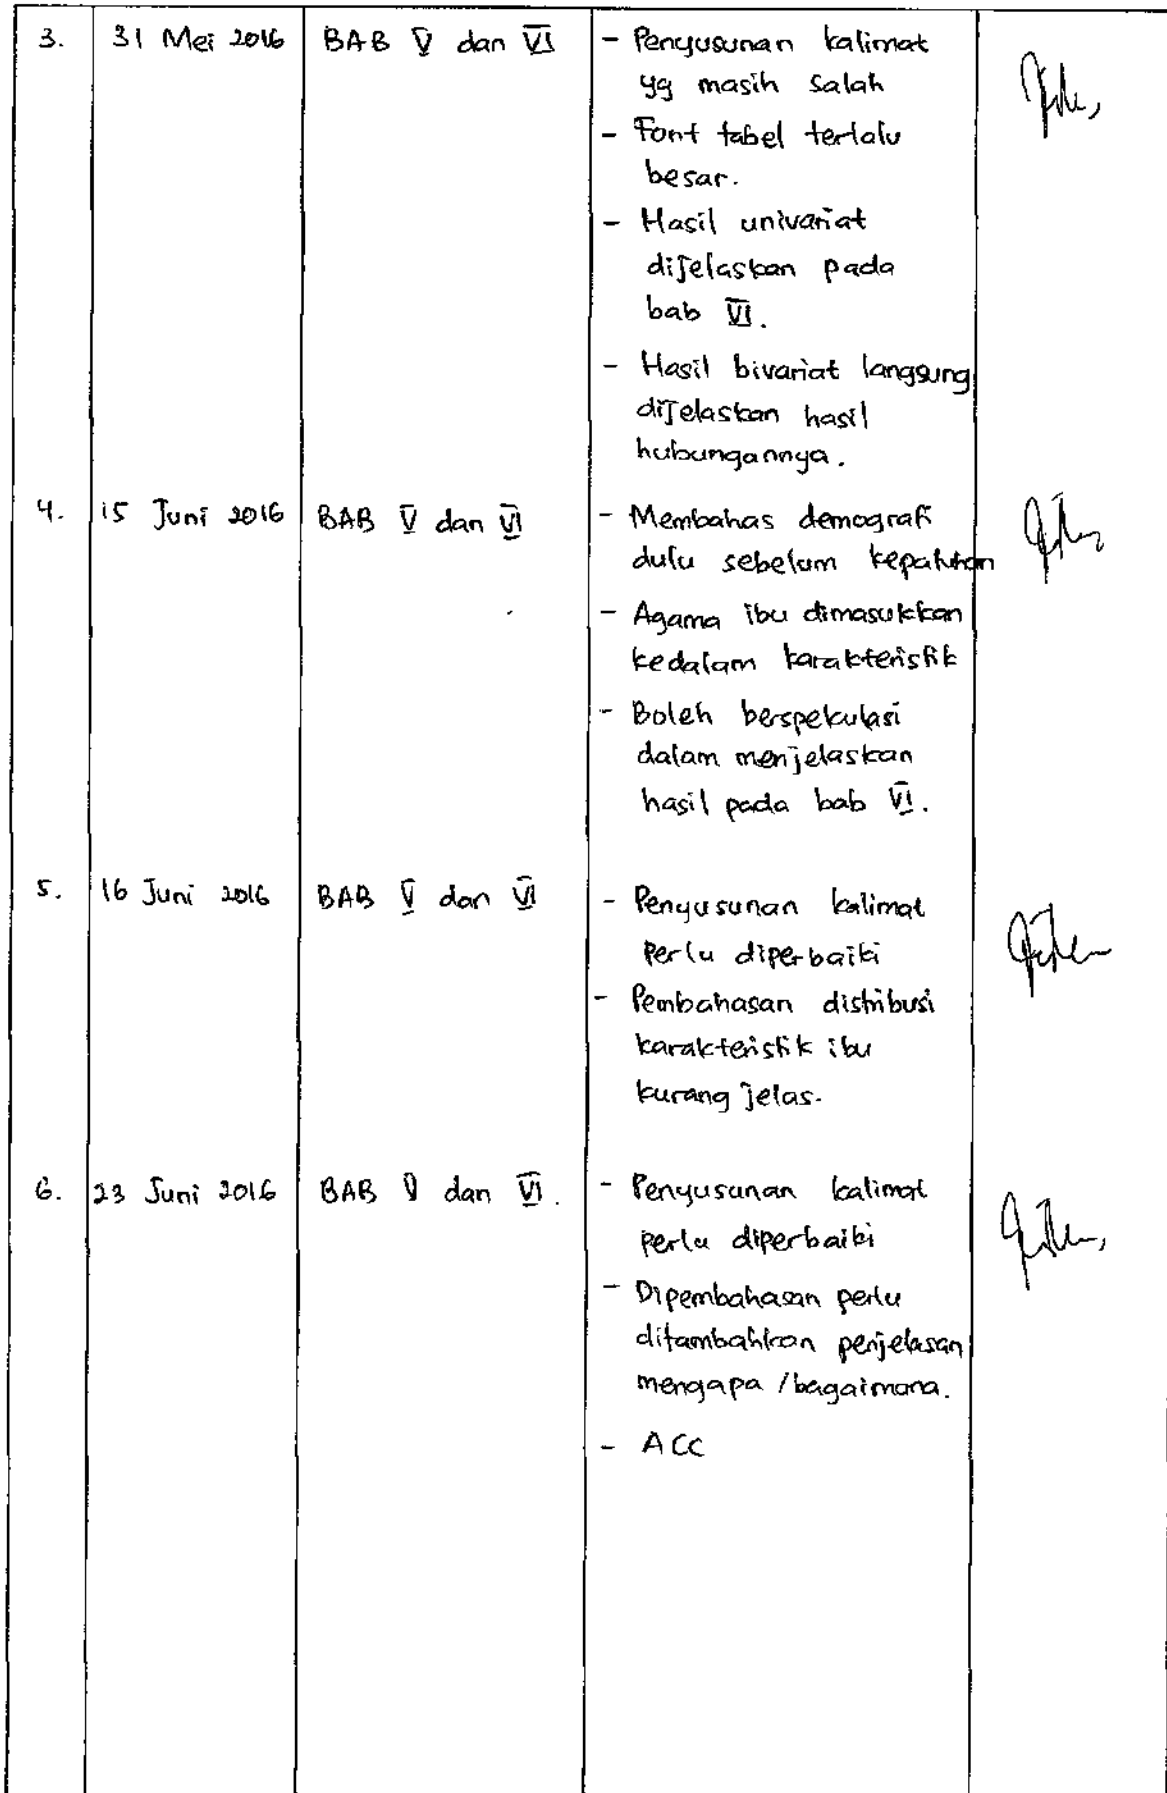 3. 31 Mei 2016 BAB V dan VI - Penyusunan kalimat
yg masih salah
- Font tabel terlalu
besar.
- Hasil univariat
dijelaskan pada
bab VI.
- Hasil bivariat langsung
dijelaskan hasil
hubungannya.
4. 15 Juni 2016 BAB V dan VI - Membahas demografi
dulu sebelum kepatuhan
- Agama ibu dimasukkan
kedalam karakteristik
- Boleh berspekulasi
dalam menjelaskan
hasil pada bab VI.
5. 16 Juni 2016 BAB V dan VI - Penyusunan kalimat
perlu diperbaiki
- Pembahasan distribusi
karakteristik ibu
kurang jelas.
6. 23 Juni 2016 BAB V dan VI. - Penyusunan kalimat
perlu diperbaiki
- Dipembahasan perlu
ditambahkan penjelasan
mengapa / bagaimana.
- ACC